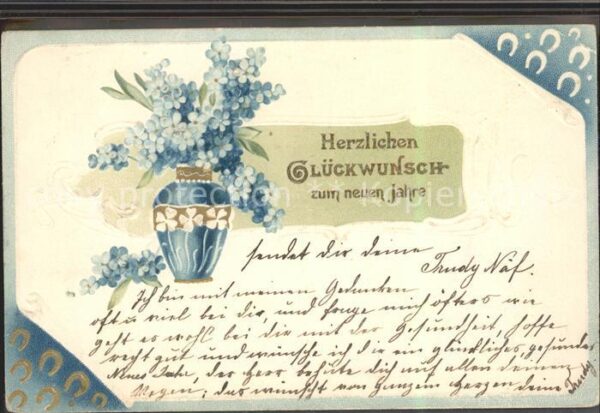 Herzlichen
Glückwunsch
zum neuen Jahre
sendet dir deine
Trudy Näf.
Ich bin mit meinen Gedanken
oft u viel bei dir, und frage mich öfters wie
geht es wohl bei dir mit der Gesundheit, hoffe
recht gut und wünsche ich dir ein glückliches, gesundes
Neues Jahr, der Herr behüte dich auf allen deinen
Wegen, das wünscht von ganzem Herzen deine Trudy.